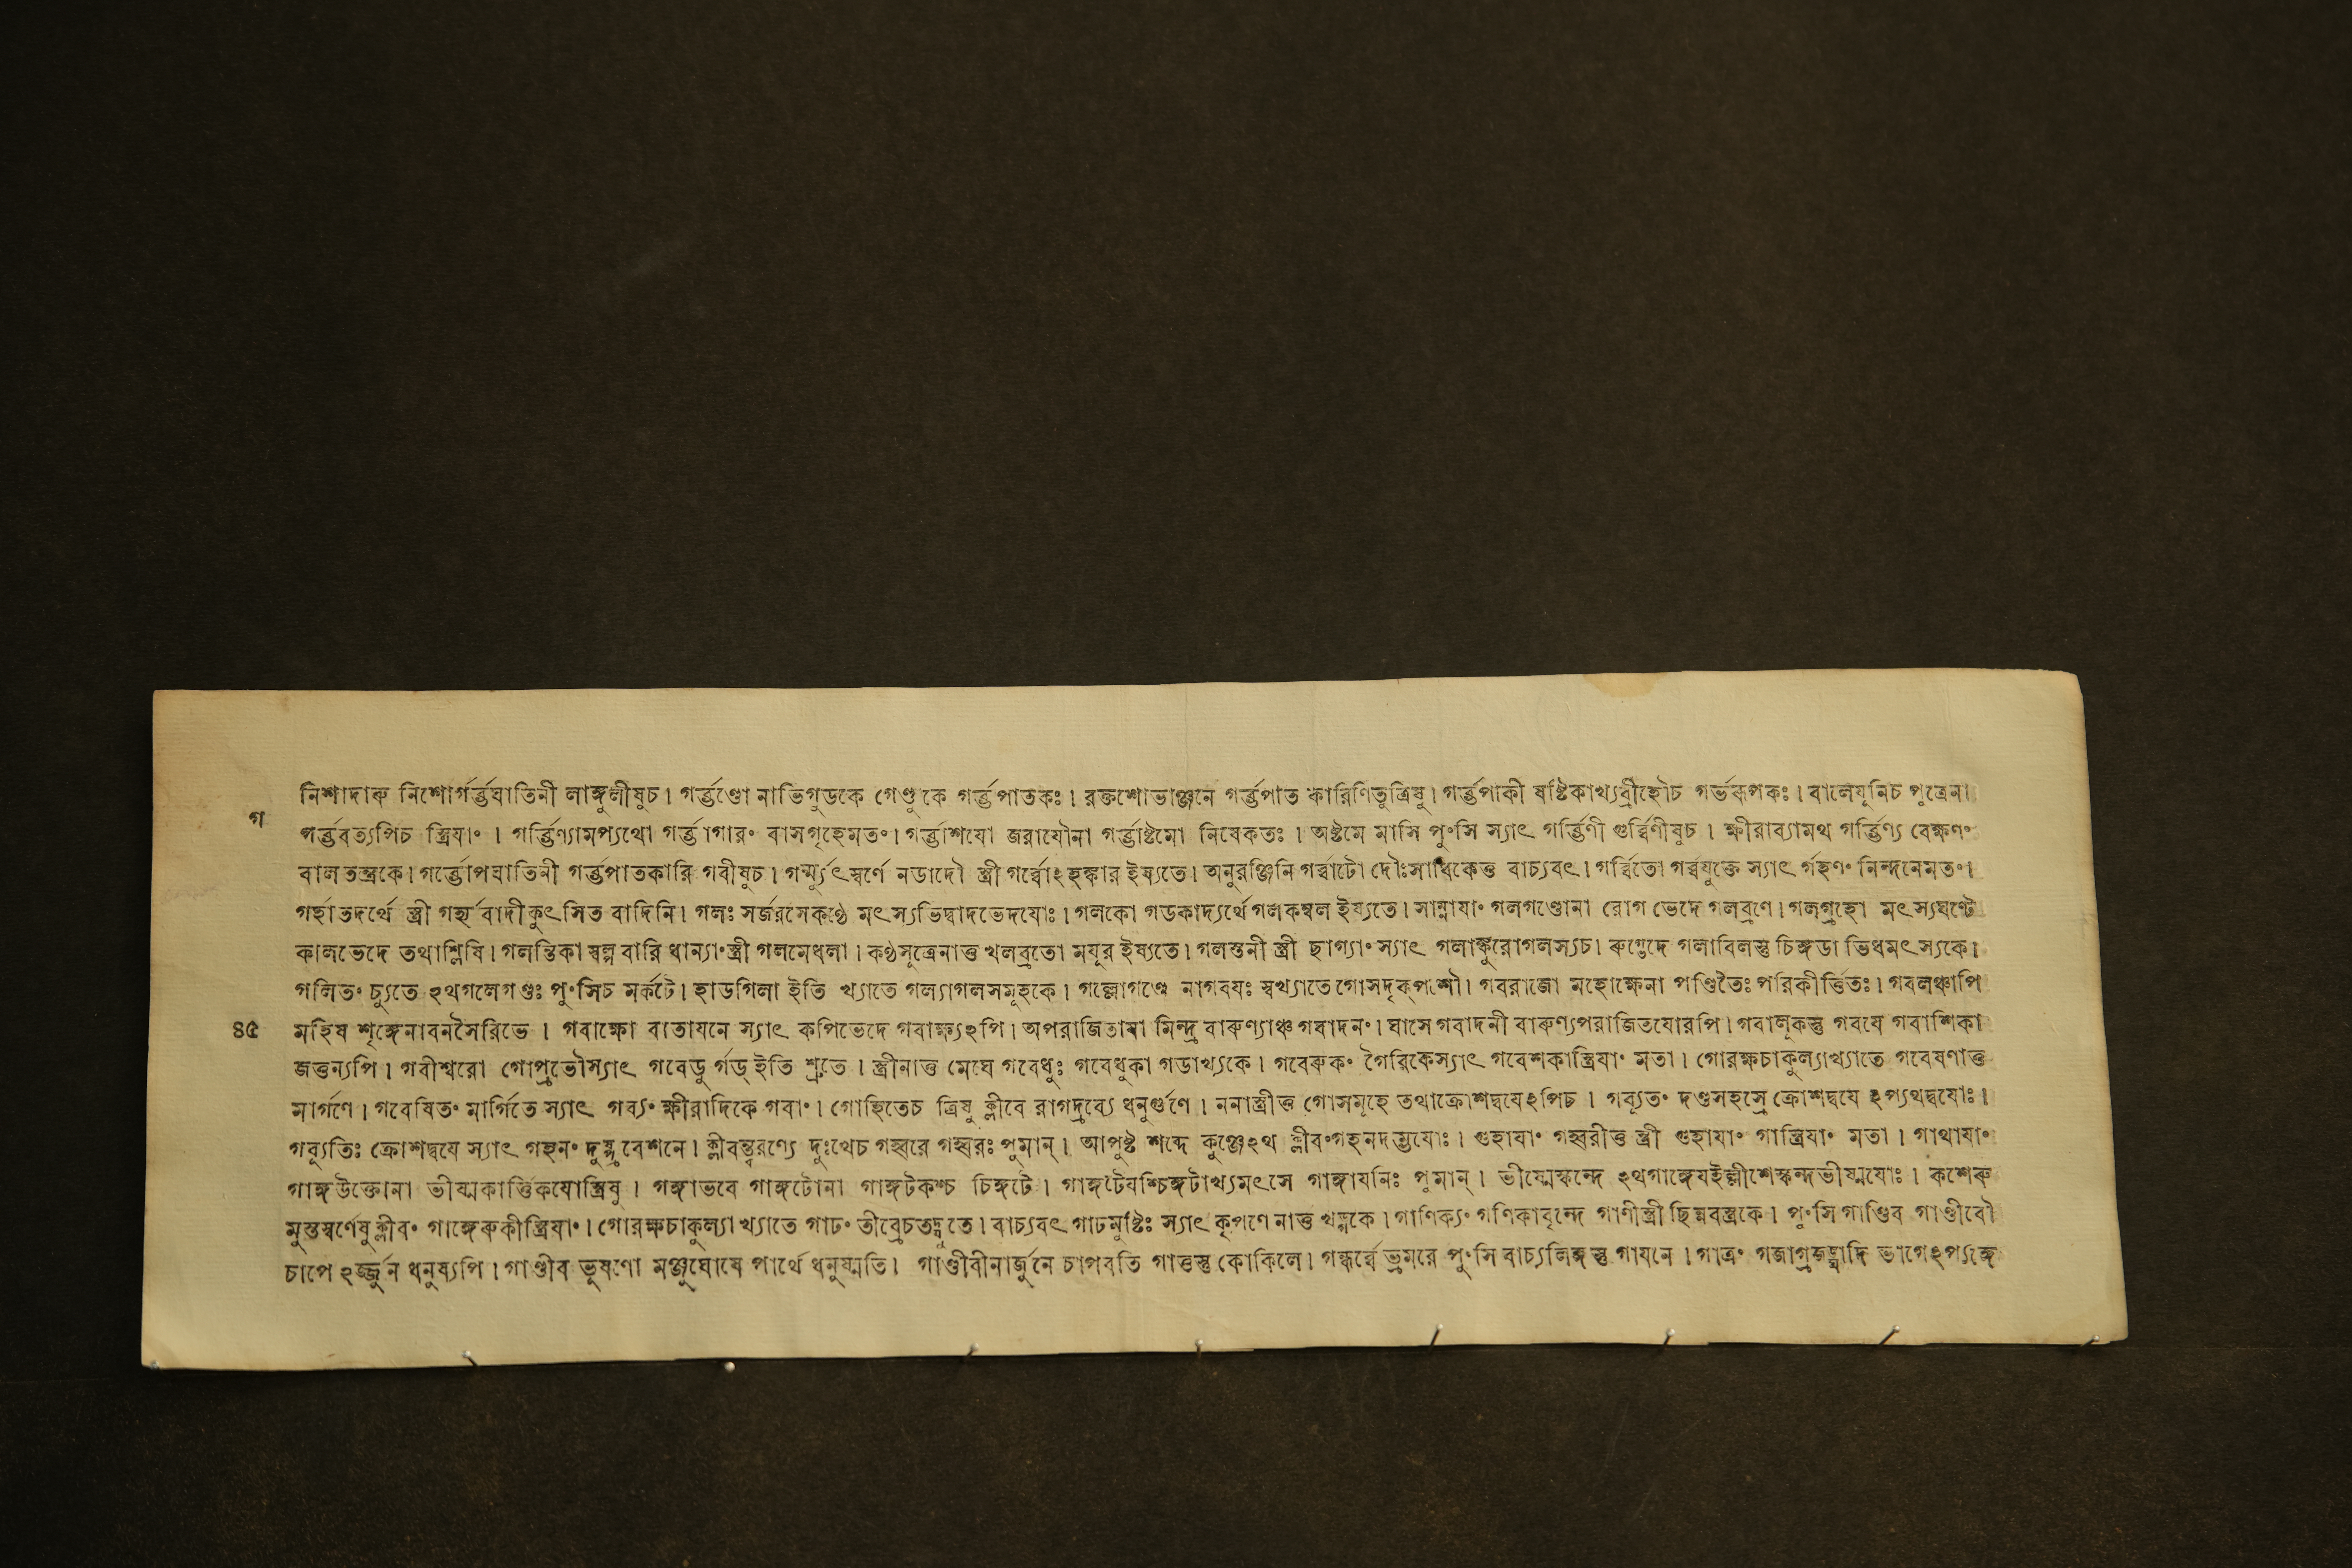 নিশাদারু নিশোগর্ত্তঘাতিনী লাঙ্গুলীষুচ। গর্ত্তণ্ডো নাভিগুডকে গেণ্ডুকে গর্ত্তপাতকঃ। রক্তশোভাঞ্জনে গর্ত্তপাত কারিণিতুত্রিষু। গর্ত্তপাকী ষষ্টিকাখ্যব্রীহৌচ গর্ভরূপকঃ। বালেযূনিচ পুত্রেনা
গ
গর্ত্তবত্যপিচ স্ত্রিযাং। গর্ত্তিণ্যামপ্যথো গর্ত্তাগারং বাসগৃহেমতং। গর্ত্তাশযো জরাযৌনা গর্ত্তাষ্টমো নিষেকতঃ। অষ্টমে মাসি পুংসি স্যাৎ গর্ত্তিণী গুর্ব্বিণীষুচ। ক্ষীরাব্যামথ গর্ত্তিণ্য বেক্ষণং
বালতন্ত্রকে। গর্ত্তোপঘাতিনী গর্ত্তপাতকারি গবীষুচ। গর্ম্মুৎস্বর্ণে নডাদৌ স্ত্রী গর্ব্বোঽহঙ্কার ইষ্যতে। অনুরঞ্জিনি গর্ব্বাটো দৌঃসাধিকেত্ত বাচ্যবৎ। গর্ব্বিতো গর্ব্বযুক্তে স্যাৎ র্গহণং নিন্দনেমতং।
গর্হাতদর্থে স্ত্রী গর্হ্যবাদীকুৎসিত বাদিনি। গলঃ সর্জরসেকণ্ঠে মৎস্যভিদ্বাদভেদযোঃ। গলকো গডকাদ্যর্থে গলকম্বল ইষ্যতে। সাস্নাযাং গলগণ্ডোনা রোগ ভেদে গলব্রণে। গলগ্রহো মৎস্যঘণ্টে
কালভেদে তথাশ্লিষি। গলন্তিকা স্বল্প বারি ধান্যাংস্ত্রী গলমেধলা। কণ্ঠসূত্রেনাত্ত খলব্রতো মযূর ইষ্যতে। গলস্তনী স্ত্রী ছাগ্যাং স্যাৎ গলাঙ্কুরোগলস্যচ। রুগ্ভেদে গলাবিলস্তু চিঙ্গডা ভিধমৎস্যকে।
গলিতং চ্যুতে ঽথগলেগণ্ডঃ পুংসিচ মর্কটে। হাডগিলা ইতি খ্যাতে গল্যাগলসমূহকে। গল্লোগণ্ডে নাগবযঃ স্বখ্যাতেগোসদৃক্পশৌ। গবরাজো মহোক্ষেনা পণ্ডিতৈঃ পরিকীর্ত্তিতঃ। গবলঞ্চাপি
৪৫
মহিষ শৃঙ্গেনাবনসৈরিভে। গবাক্ষো বাতাযনে স্যাৎ কপিভেদে গবাক্ষ্যঽপি। অপরাজিতাযা মিন্দ্র বারুণ্যাঞ্চ গবাদনং। ঘাসে গবাদনী বারুণ্যপরাজিতযোরপি। গবালূকস্তু গবযে গবাশিকা
জত্তন্যপি। গবীশ্বরো গোপ্রভৌস্যাৎ গবেডু র্গড্ ইতি শ্রুতে। স্ত্রীনাত্ত মেঘে গবেধুঃ গবেধুকা গডাখ্যকে। গবেরুকং গৈরিকেস্যাৎ গবেশকাস্ত্রিযাং মতা। গোরক্ষচাকুল্যাখ্যাতে গবেষণাত্ত
মার্গণে। গবেষিতং মার্গিতে স্যাৎ গব্যং ক্ষীরাদিকে গবাং। গোহিতেচ ত্রিষু ক্লীবে রাগদ্রব্যে ধনুর্গুণে। ননাস্ত্রীত্ত গোসমূহে তথাক্রোশদ্বযেঽপিচ। গব্যূতং দণ্ডসহস্রে ক্রোশদ্বযে ঽপ্যথদ্বযোঃ।
গব্যূতিঃ ক্রোশদ্বযে স্যাৎ গহনং দুষ্প্রবেশনে। ক্লীবন্ত্বরণ্যে দুঃখেচ গহ্বরে গহ্বরঃ পুমান্। আপুষ্ট শব্দে কুঞ্জেঽথ ক্লীবংগহনদম্ভযোঃ। গুহাযাং গহ্বরীত্ত স্ত্রী গুহাযাং গাস্ত্রিযাং মতা। গাথাযাং
গাঙ্গউক্তোনা ভীষ্মকার্ত্তিকযোস্ত্রিষু। গঙ্গাভবে গাঙ্গটোনা গাঙ্গটকশ্চ চিঙ্গটে। গাঙ্গটৈযশ্চিঙ্গটাখ্যমৎসে গাঙ্গাযনিঃ পুমান্। ভীষ্মেস্কন্দে ঽথগাঙ্গেযইল্লীশেস্কন্দভীষ্মযোঃ। কশেরু
মুস্তস্বর্ণেষুক্লীবং গাঙ্গেরুকীস্ত্রিযাং। গোরক্ষচাকুল্যা খ্যাতে গাঢং তীব্রেচতদ্বৃতে। বাচ্যবৎ গাঢমুষ্টিঃ স্যাৎ কৃপণে নাত্ত খড্গকে। গাণিক্যং গণিকাবৃন্দে গাণীস্ত্রী ছিন্নবস্ত্রকে। পুংসি গাণ্ডিব গাণ্ডীবৌ
চাপে ঽর্জ্জুন ধনুষ্যপি। গাণ্ডীব ভূষণো মঞ্জুঘোষে পার্থে ধনুষ্মতি। গাণ্ডীবীনার্জুনে চাপবতি গাত্তস্তু কোকিলে। গন্ধর্ব্বে ভ্রমরে পুংসি বাচ্যলিঙ্গস্তু গাযনে। গাত্রং গজাগ্রজঙ্ঘাদি ভাগেঽপ্যঙ্গে